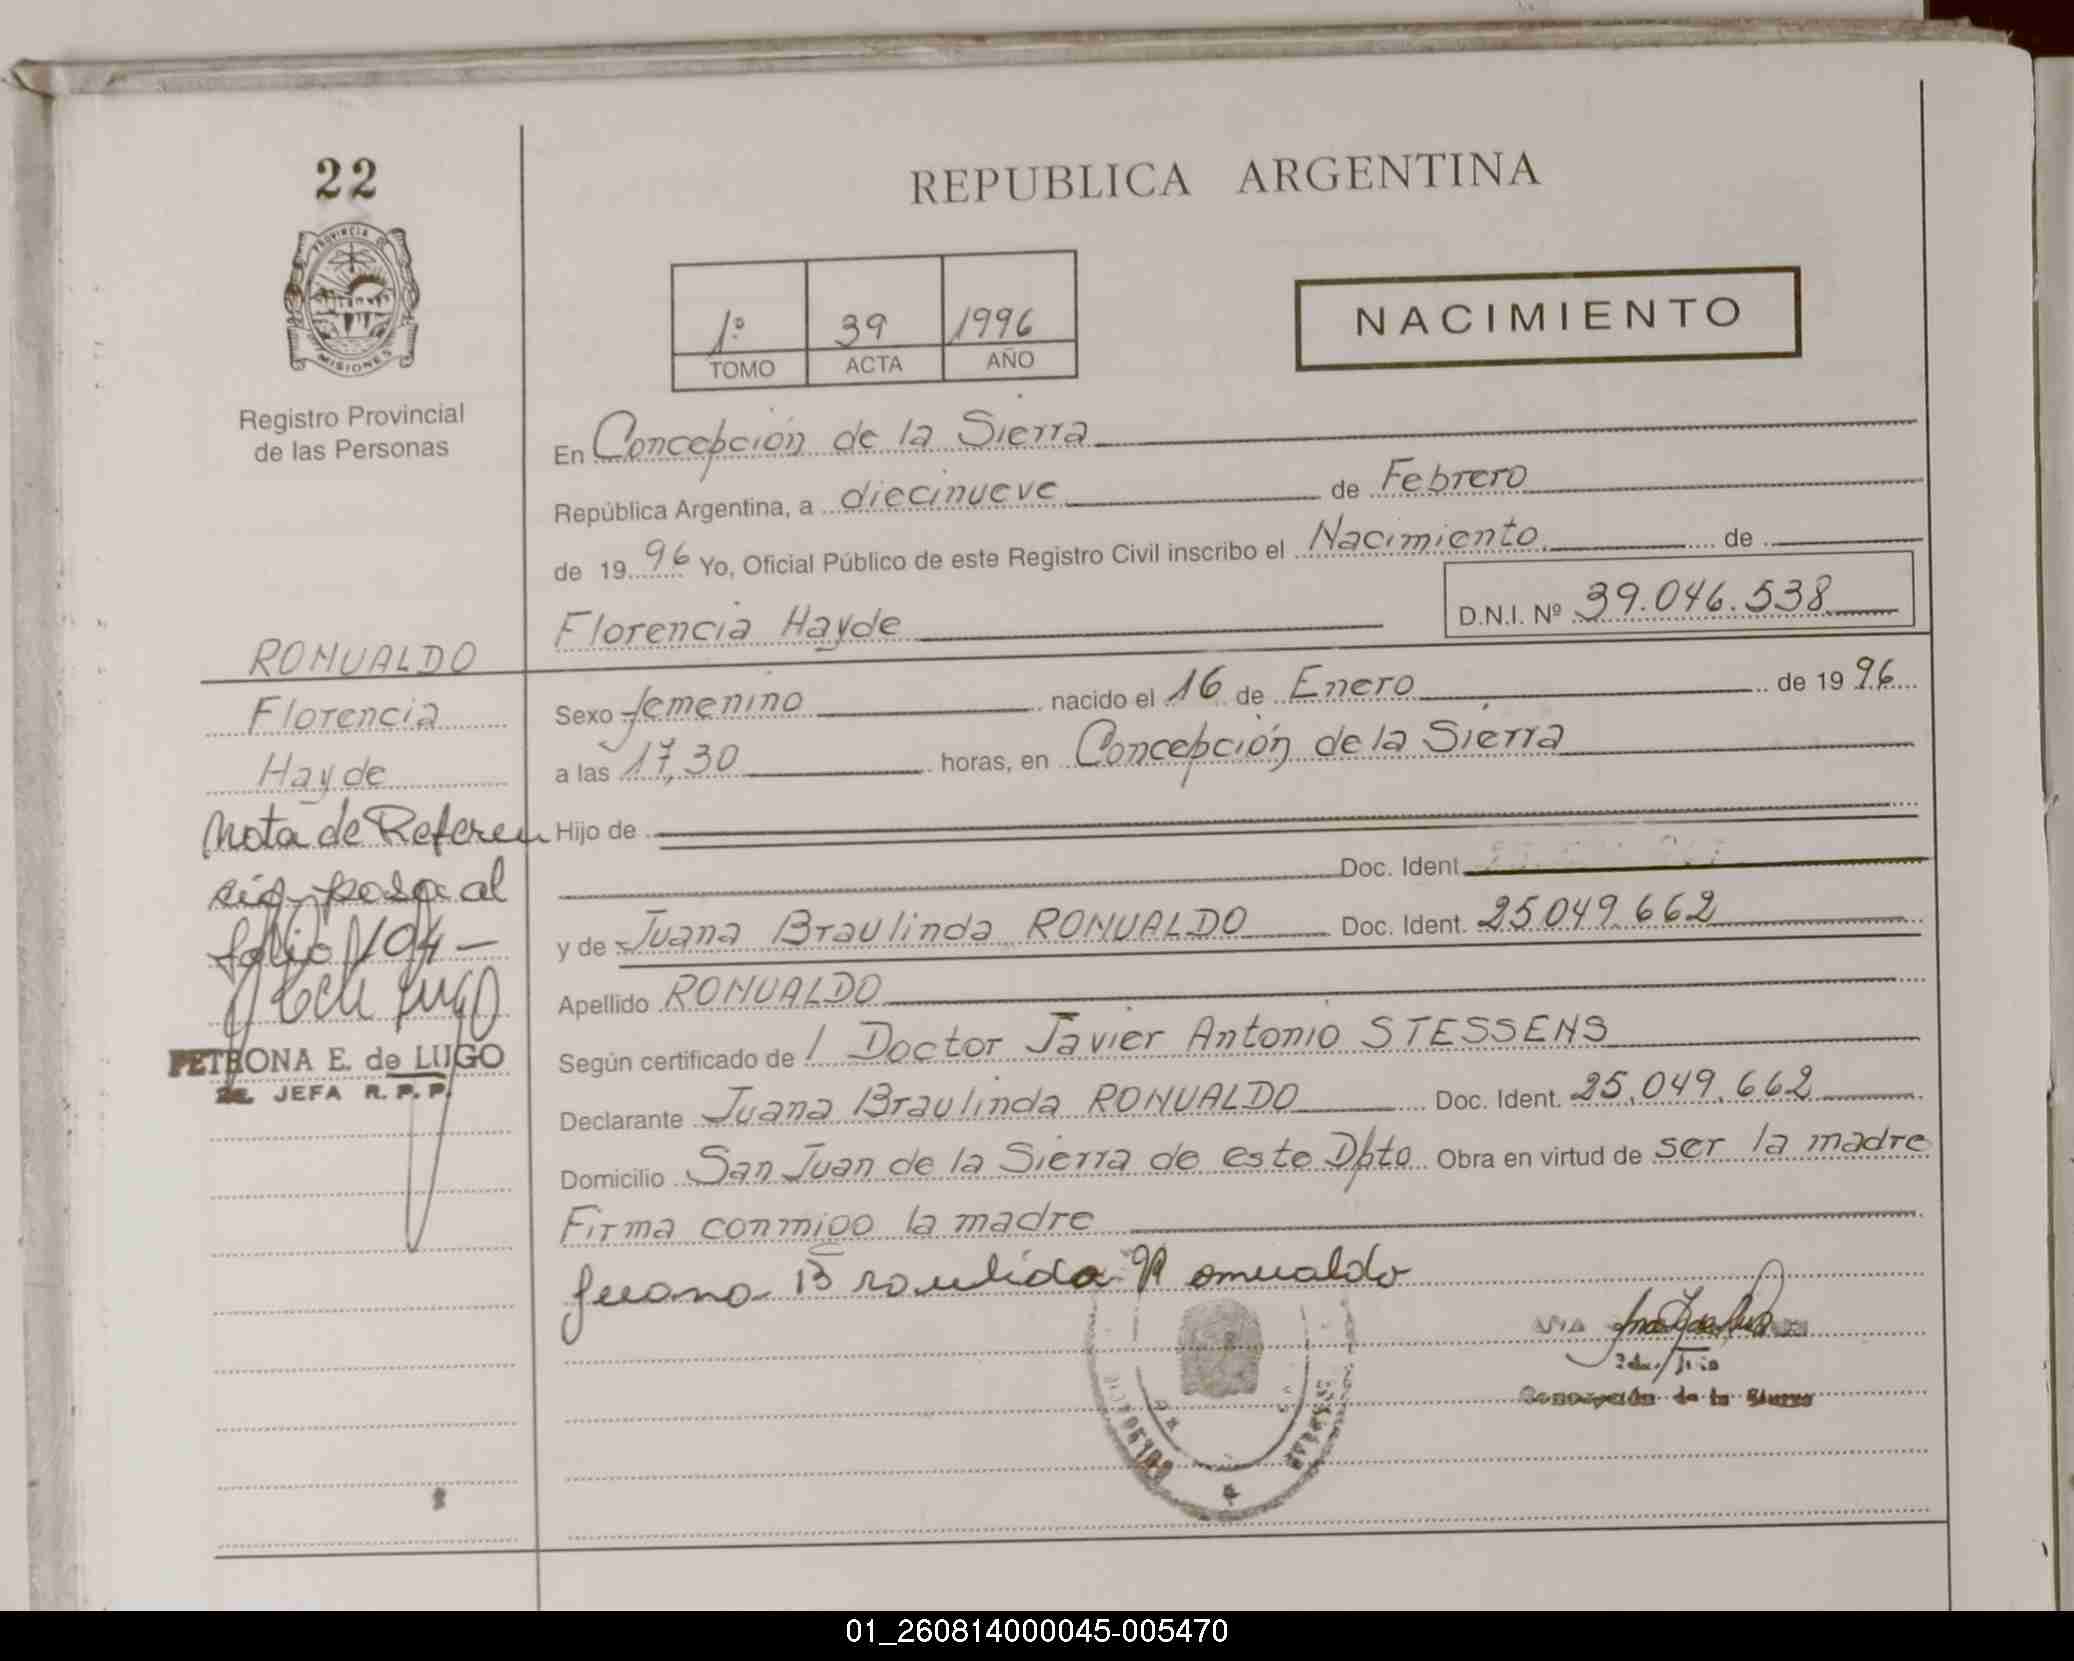 22
REPUBLICA ARGENTINA
PROVINCIA DE
MISIONES
Registro Provincial
de las Personas
1º 39 1996
TOMO ACTA AÑO
NACIMIENTO
En Concepción de la Sierra
República Argentina, a diecinueve de Febrero
de 1996 Yo, Oficial Público de este Registro Civil inscribo el Nacimiento de
Florencia Hayde D.N.I. Nº 39.046.538
ROMUALDO
Florencia
Hayde
Nota de Referen
cia pasa al
folio 104 -
PETRONA E. de LUGO
JEFA R. P. P.
Sexo femenino nacido el 16 de Enero de 1996
a las 17,30 horas, en Concepción de la Sierra
Hijo de
Doc. Ident.
y de Juana Braulinda ROMUALDO Doc. Ident. 25.049.662
Apellido ROMUALDO
Según certificado de / Doctor Javier Antonio STESSENS
Declarante Juana Braulinda ROMUALDO Doc. Ident. 25.049.662
Domicilio San Juan de la Sierra de este Dpto Obra en virtud de ser la madre
Firma conmigo la madre
Juana Braulida Romualdo
Concepción de la Sierra
01_260814000045-005470